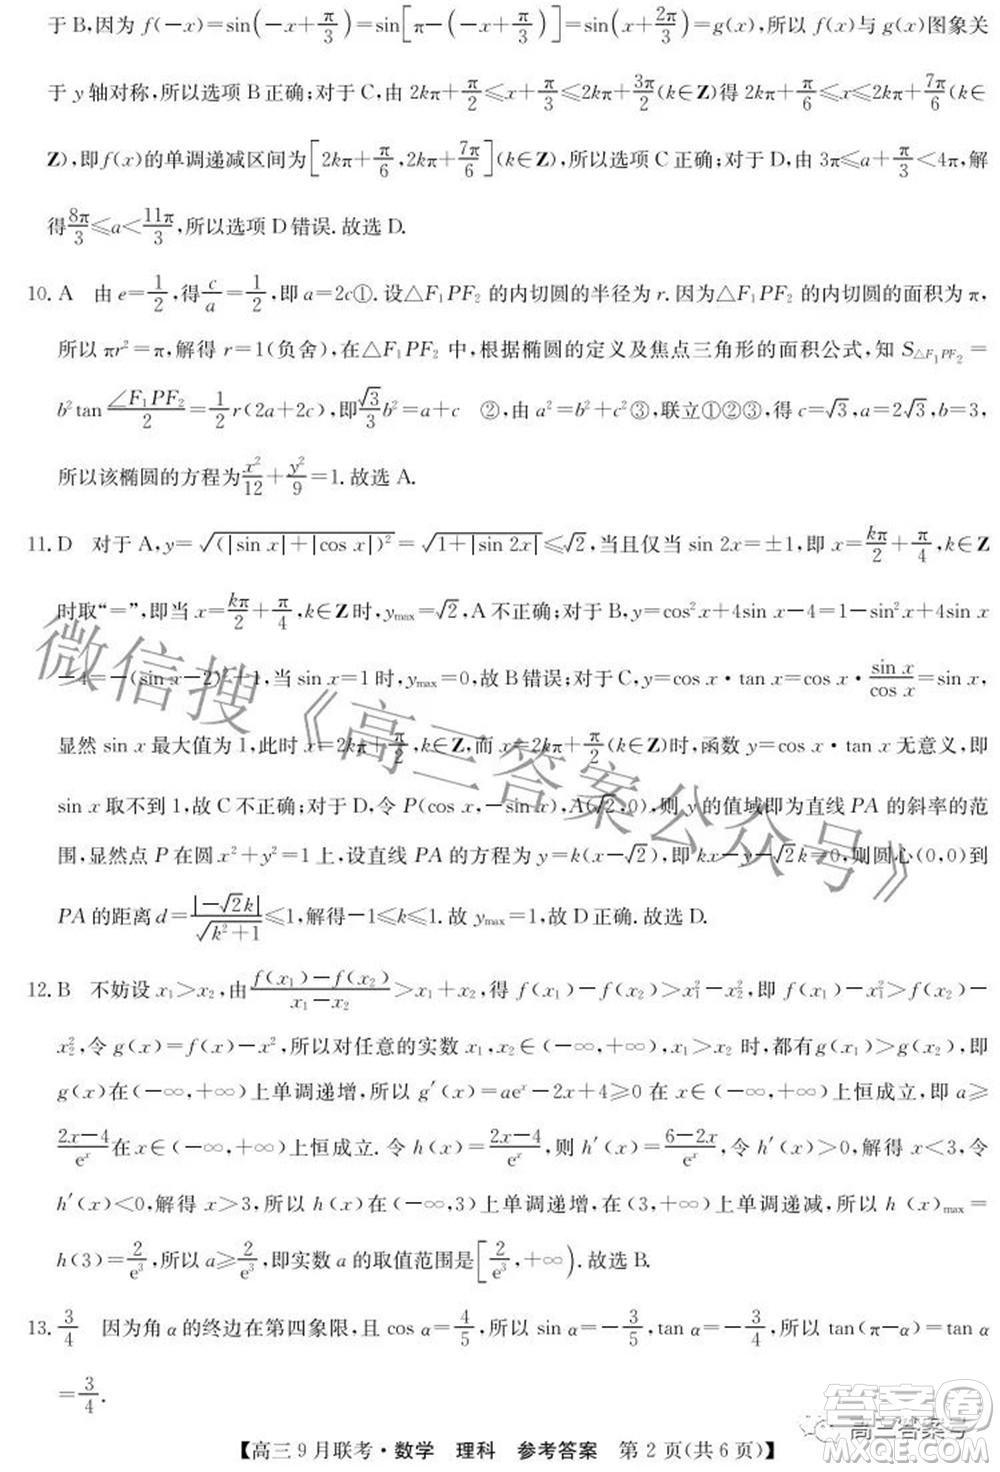 于 B,因为 f(−x)=sin(−x+π/3)=sin[π−(−x+π/3)]=sin(x+2π/3)=g(x),所以 f(x)与 g(x)图象关
于 y 轴对称,所以选项 B 正确;对于 C,由 2kπ+π/2≤x+π/3≤2kπ+3π/2(k∈Z)得 2kπ+π/6≤x≤2kπ+7π/6(k∈
Z),即 f(x)的单调递减区间为[2kπ+π/6,2kπ+7π/6](k∈Z),所以选项 C 正确;对于 D,由 3π≤a+π/3<4π,解
得8π/3≤a<11π/3,所以选项 D 错误.故选 D.
10. A 由 e=1/2,得c/a=1/2,即 a=2c①.设△F₁PF₂ 的内切圆的半径为 r.因为△F₁PF₂ 的内切圆的面积为 π,
所以 πr²=π,解得 r=1(负舍),在△F₁PF₂ 中,根据椭圆的定义及焦点三角形的面积公式,知 S△F₁PF₂=
b²tan∠F₁PF₂/2=1/2r(2a+2c),即√3/3b²=a+c ②,由 a²=b²+c²③,联立①②③,得 c=√3,a=2√3,b=3,
所以该椭圆的方程为x²/12+y²/9=1.故选 A.
11. D 对于 A,y=√(|sin x|+|cos x|)²=√1+|sin 2x|≤√2,当且仅当 sin 2x=±1,即 x=kπ/2+π/4,k∈Z
时取“=”,即当 x=kπ/2+π/4,k∈Z 时,ymax=√2,A 不正确;对于 B,y=cos²x+4sin x−4=1−sin²x+4sin x
−4=−(sin x−2)²+1,当 sin x=1 时,ymax=0,故 B 错误;对于 C,y=cos x·tan x=cos x·sin x/cos x=sin x,
显然 sin x 最大值为 1,此时 x=2kπ+π/2,k∈Z,而 x=2kπ+π/2(k∈Z)时,函数 y=cos x·tan x 无意义,即
sin x 取不到 1,故 C 不正确;对于 D,令 P(cos x,−sin x),A(√2,0),则 y 的值域即为直线 PA 的斜率的范
围,显然点 P 在圆 x²+y²=1 上,设直线 PA 的方程为 y=k(x−√2),即 kx−y−√2k=0,则圆心(0,0)到
PA 的距离 d=|−√2k|/√k²+1≤1,解得−1≤k≤1.故 ymax=1,故 D 正确.故选 D.
12. B 不妨设 x₁>x₂,由f(x₁)−f(x₂)/x₁−x₂>x₁+x₂,得 f(x₁)−f(x₂)>x₁²−x₂²,即 f(x₁)−x₁²>f(x₂)−
x₂²,令 g(x)=f(x)−x²,所以对任意的实数 x₁,x₂∈(−∞,+∞),x₁>x₂ 时,都有g(x₁)>g(x₂),即
g(x)在(−∞,+∞)上单调递增,所以 g′(x)=aeˣ−2x+4≥0 在(−∞,+∞)上恒成立,即 a≥
2x−4/eˣ在(−∞,+∞)上恒成立.令 h(x)=2x−4/eˣ,则 h′(x)=6−2x/eˣ,令 h′(x)>0,解得 x<3,令
h′(x)<0,解得 x>3,所以 h(x)在(−∞,3)上单调递增,在(3,+∞)上单调递减,所以 h(x)max=
h(3)=2/e³,所以 a≥2/e³,即实数 a 的取值范围是[2/e³,+∞).故选 B.
13. 3/4 因为角 α 的终边在第四象限,且 cos α=4/5,所以 sin α=−3/5,所以 tan α=−3/4,所以 tan(π−α)=tan α
=3/4.
微信搜《高三答案公众号》
答案圈
高三答案号
MXQE.COM
【高三 9 月联考·数学 理科 参考答案 第 2 页(共 6 页)】